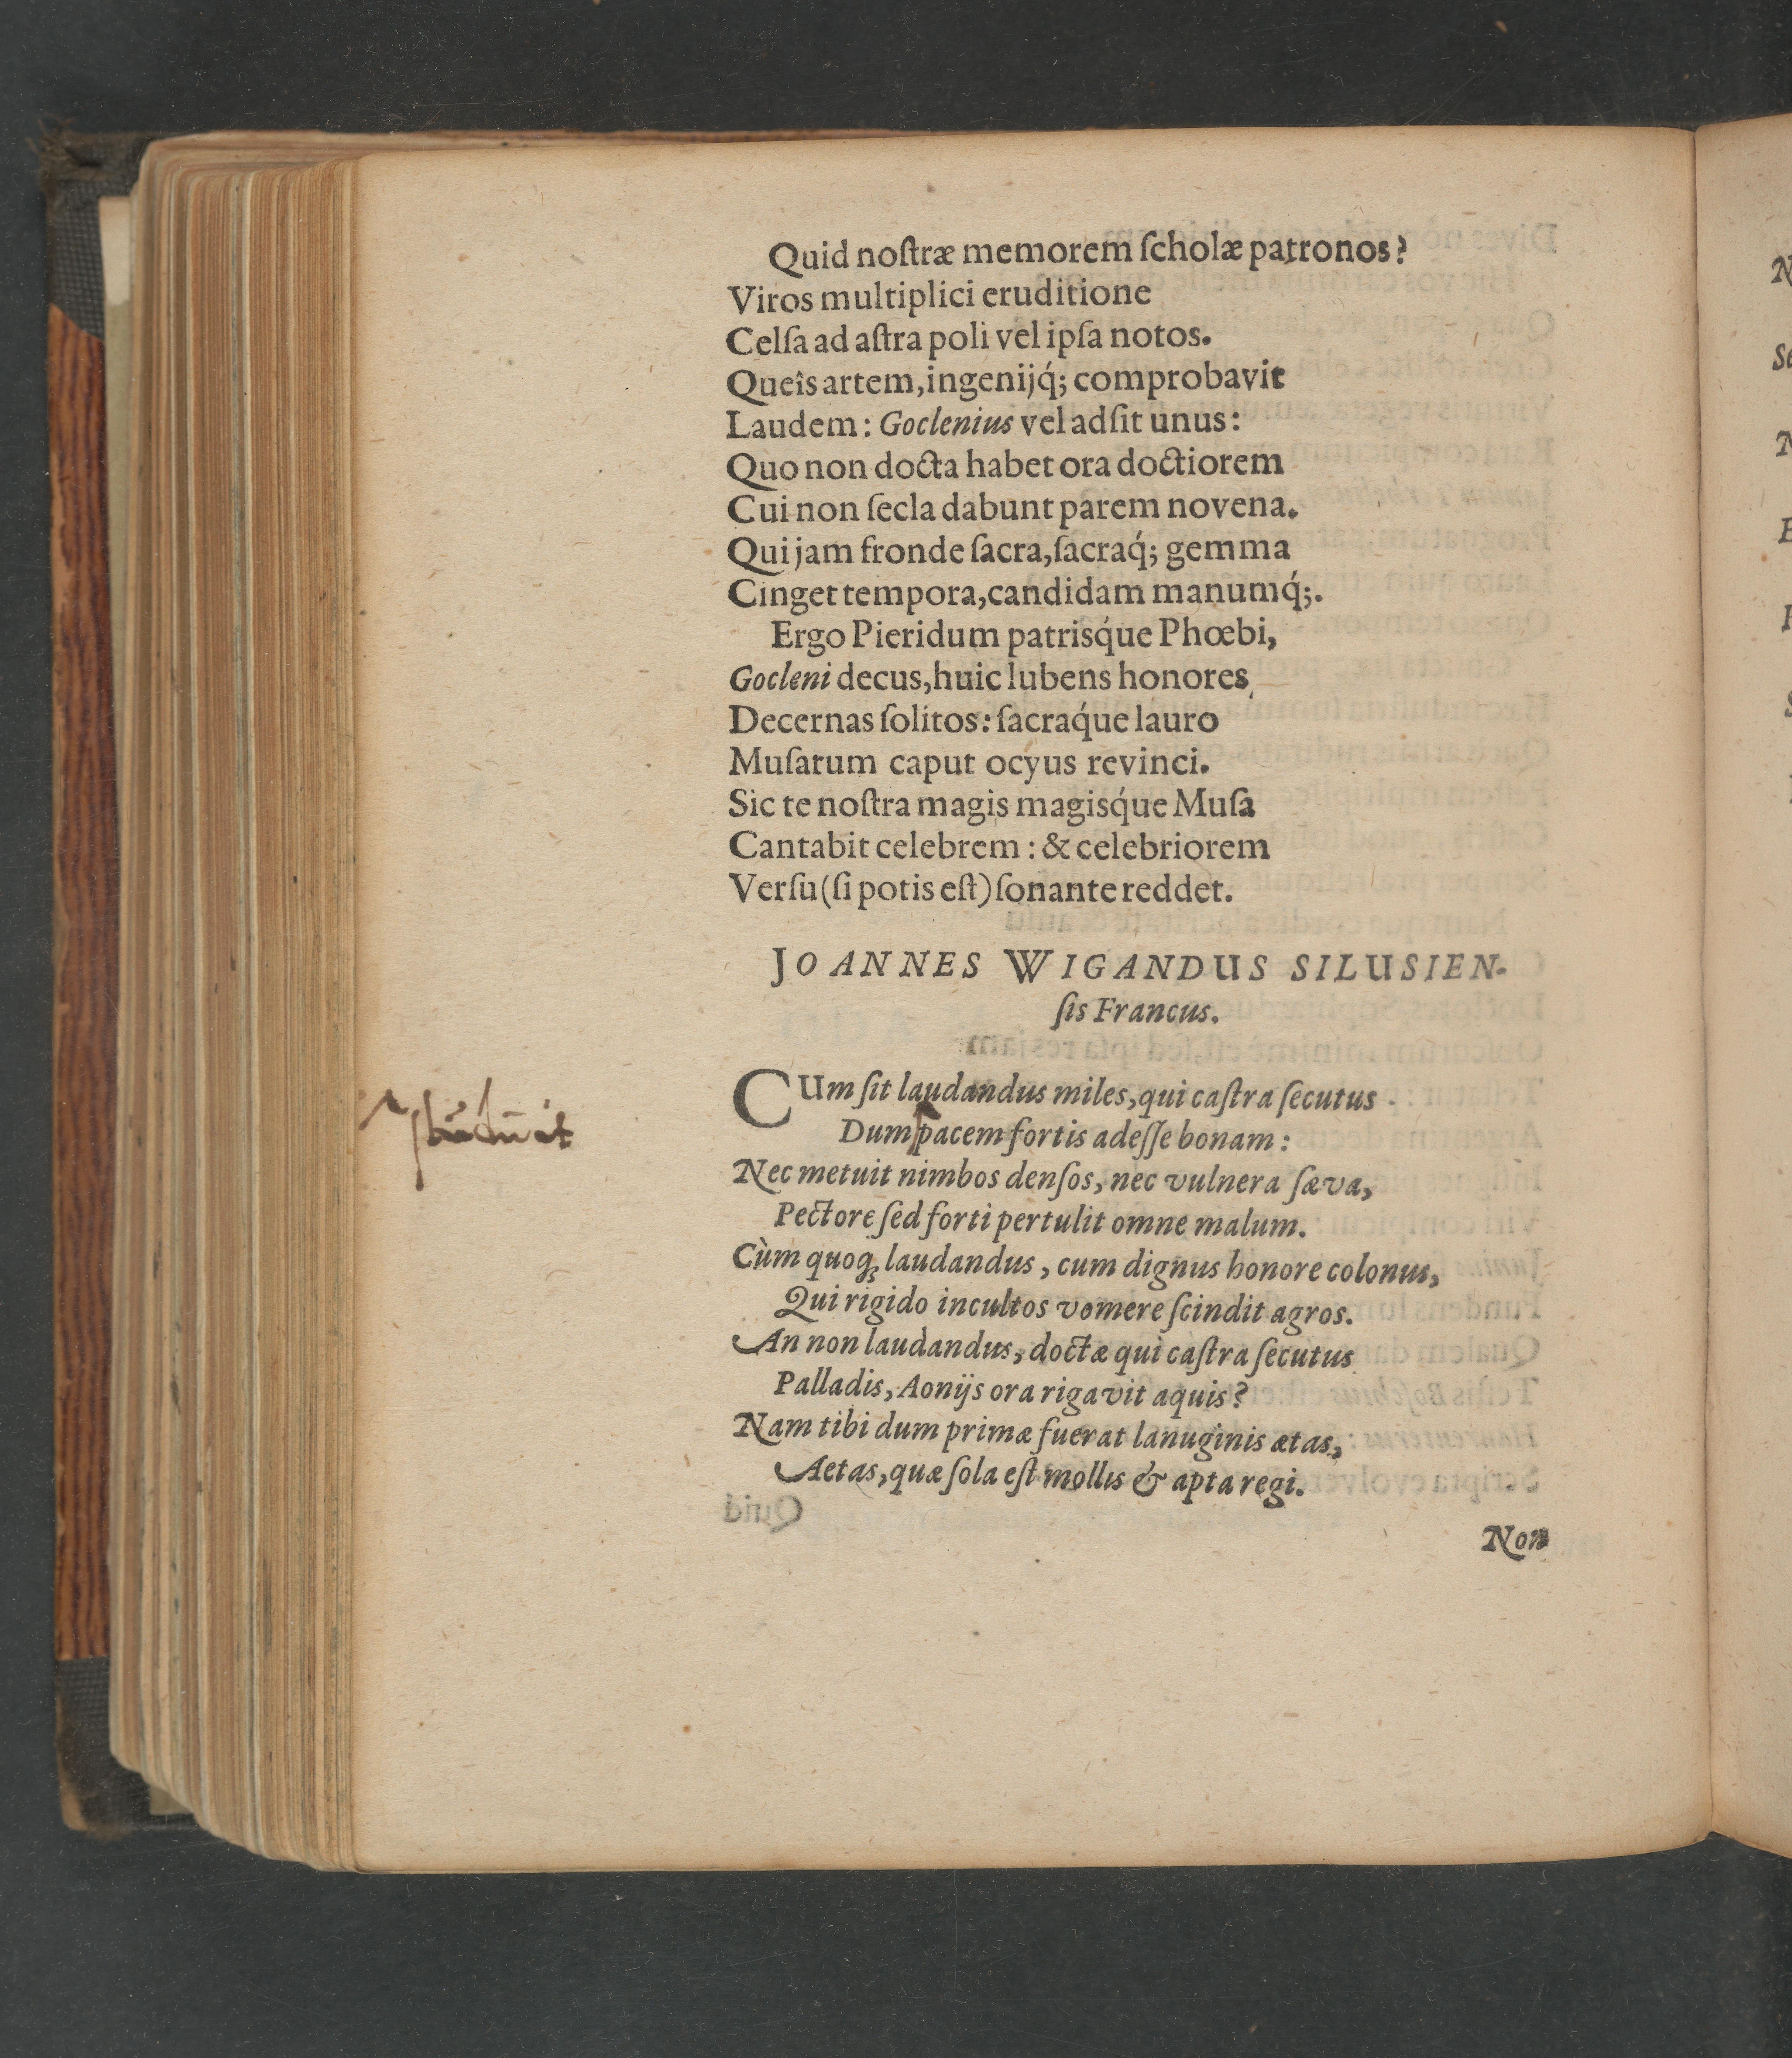 Quid noſtræ memorem ſcholæ patronos?
Viros multiplici eruditione
Celſa ad aſtra poli vel ipſa notos.
Queîs artem, ingenijq́; comprobavit
Laudem: Goclenius vel adſit unus:
Quo non docta habet ora doctiorem
Cui non ſecla dabunt parem novena.
Qui jam fronde ſacra, ſacraq́; gemma
Cinget tempora, candidam manumq́;.
Ergo Pieridum patrisq́ue Phœbi,
Gocleni decus, huic lubens honores
Decernas ſolitos: ſacraq́ue lauro
Muſarum caput ocyus revinci.
Sic te noſtra magis magisq́ue Muſa
Cantabit celebrem: & celebriorem
Verſu (ſi potis eſt) ſonante reddet.
JOANNES WIGANDUS SILUSIEN-
ſis Francus.
CUm ſit laudandus miles, qui caſtra ſecutus
Dum pacem fortis adeſſe bonam:
Nec metuit nimbos denſos, nec vulnera ſæva,
Pectore ſed forti pertulit omne malum.
Cùm quoq; laudandus, cum dignus honore colonus,
Qui rigido incultos vomere ſcindit agros.
An non laudandus, doctæ qui caſtra ſecutus
Palladis, Aonijs ora rigavit aquis?
Nam tibi dum primæ fuerat lanuginis ætas,
Aetas, quæ ſola eſt mollis & apta regi.
Non